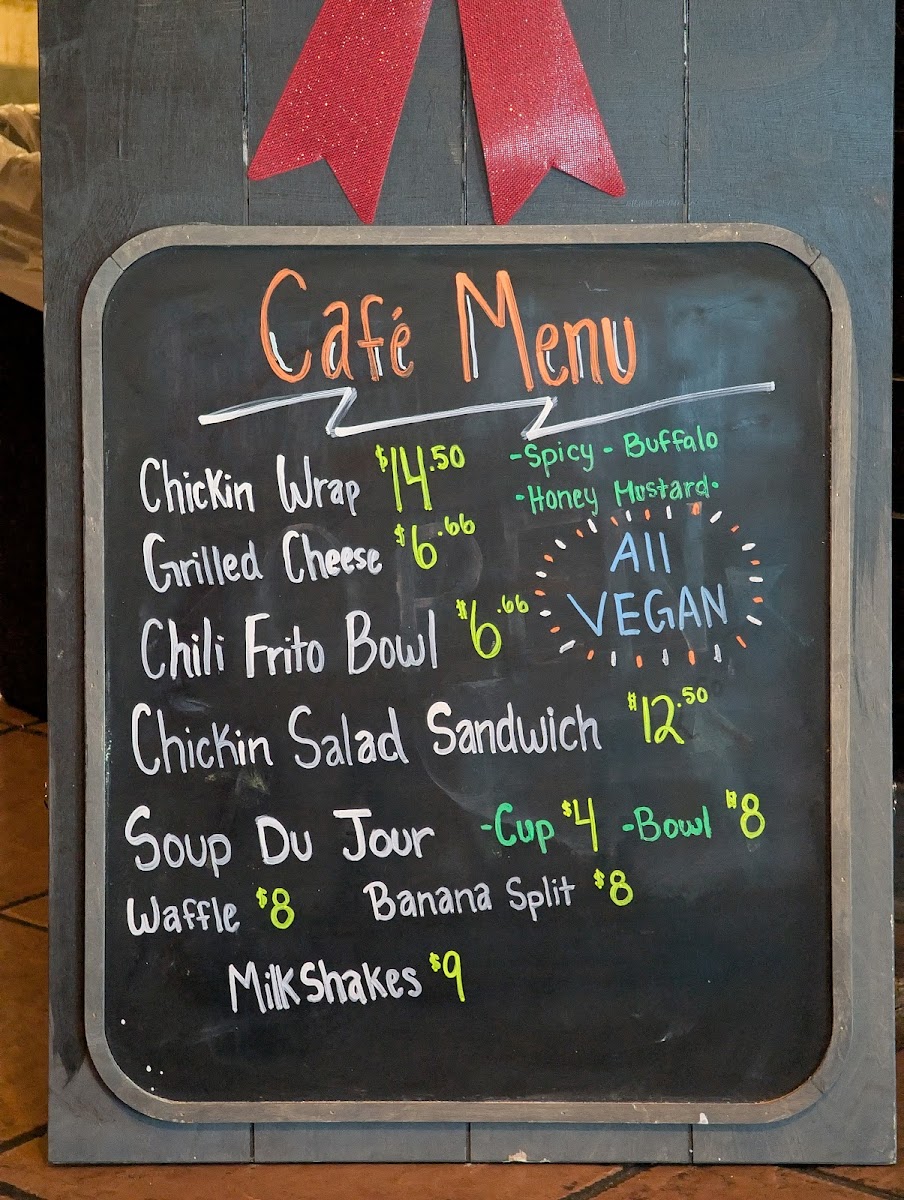 Café Menu
Chickin Wrap $14.50 -Spicy - Buffalo
-Honey Mustard-
Grilled Cheese $6.66
All
VEGAN
Chili Frito Bowl $6.66
Chickin Salad Sandwich $12.50
Soup Du Jour -Cup $4 -Bowl $8
Waffle $8 Banana Split $8
MilkShakes $9